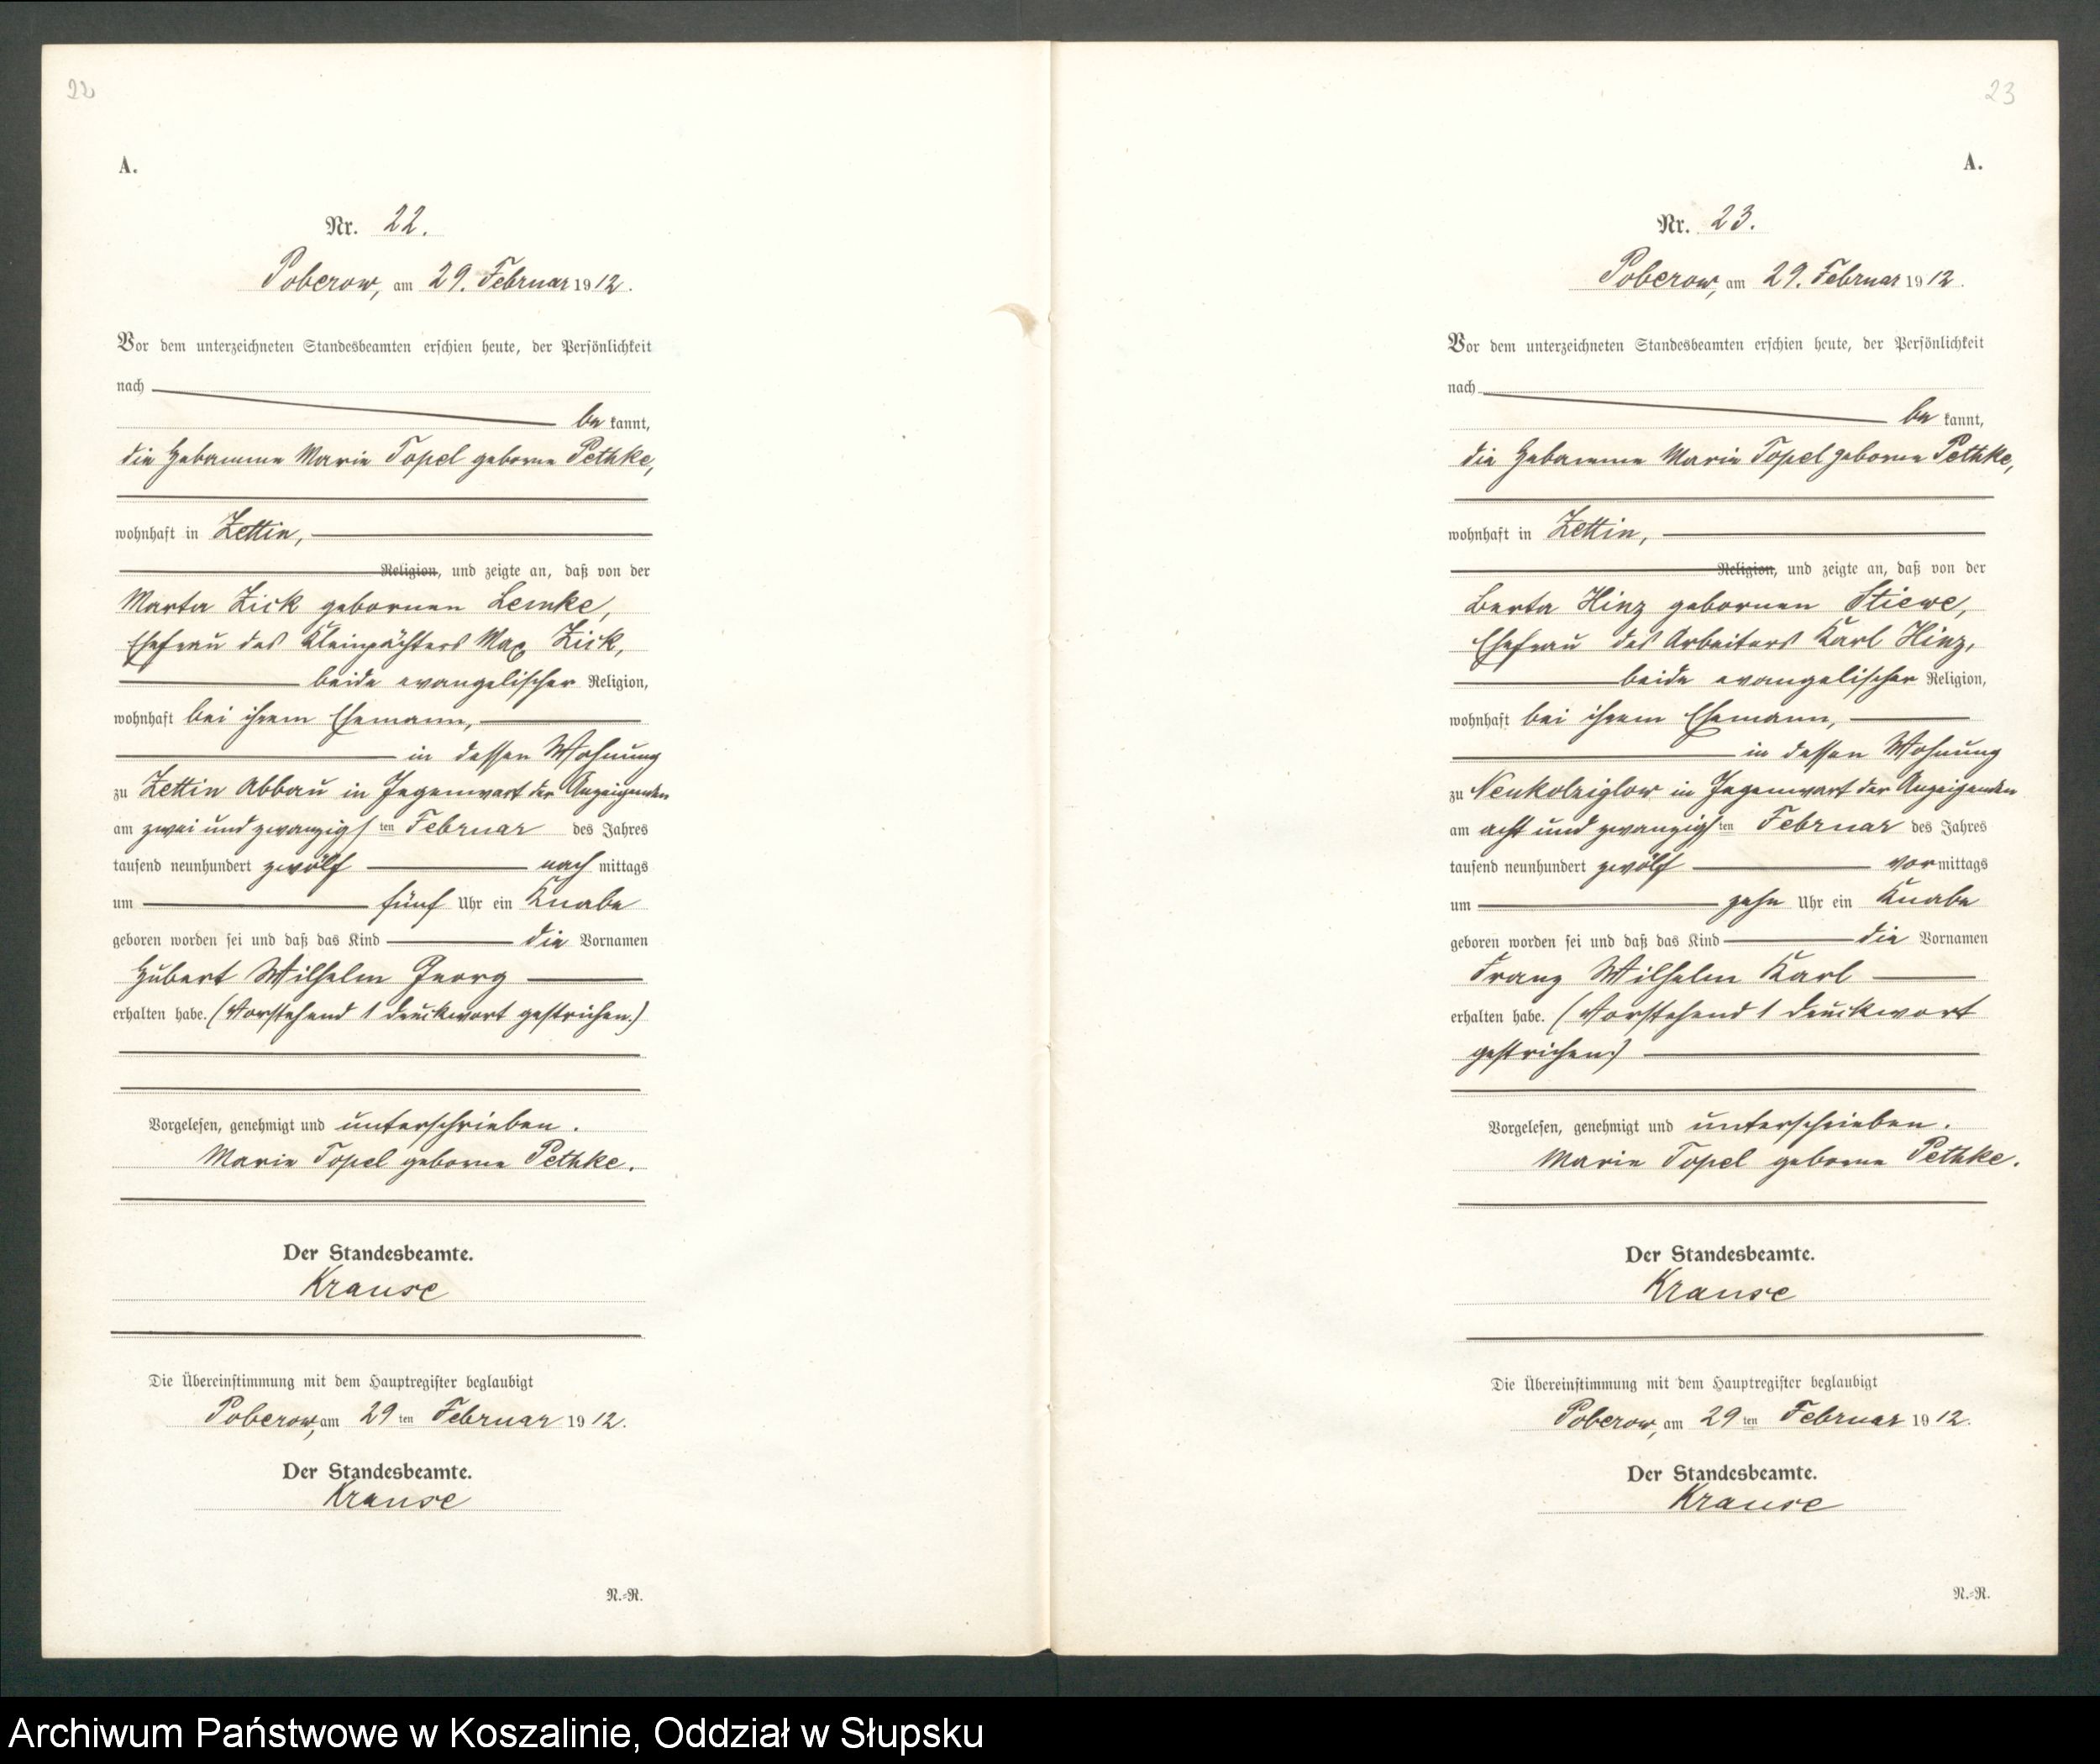 22
A.
Nr. 22.
Poberow, am 29. Februar 1912.
Vor dem unterzeichneten Standesbeamten erschien heute, der Persönlichkeit
nach
be kannt,
die Hebamme Marie Topel geborne Pethke,
wohnhaft in Zettin,
Religion, und zeigte an, daß von der
Marta Zick gebornen Lemke,
Ehefrau des Kleinpächters Max Zick,
beide evangelischer Religion,
wohnhaft bei ihrem Ehemann,
in dessen Wohnung
zu Zettin Abbau in Gegenwart der Anzeigenden
am zwei und zwanzigsten Februar des Jahres
tausend neunhundert zwölf nach mittags
um fünf Uhr ein Knabe
geboren worden sei und daß das Kind die Vornamen
Hubert Wilhelm Georg
erhalten habe. (Vorstehend 1 Druckwort gestrichen.)
Vorgelesen, genehmigt und unterschrieben.
Marie Topel geborne Pethke.
Der Standesbeamte.
Krause
Die Übereinstimmung mit dem Hauptregister beglaubigt
Poberow, am 29ten Februar 1912.
Der Standesbeamte.
Krause
N.=R.
23
A.
Nr. 23.
Poberow, am 29. Februar 1912.
Vor dem unterzeichneten Standesbeamten erschien heute, der Persönlichkeit
nach
be kannt,
die Hebamme Marie Topel geborne Pethke,
wohnhaft in Zettin,
Religion, und zeigte an, daß von der
Berta Hinz gebornen Stiewe,
Ehefrau des Arbeiters Karl Hinz,
beide evangelischer Religion,
wohnhaft bei ihrem Ehemann,
in dessen Wohnung
zu Neukolziglow in Gegenwart der Anzeigenden
am acht und zwanzigsten Februar des Jahres
tausend neunhundert zwölf vormittags
um zehn Uhr ein Knabe
geboren worden sei und daß das Kind die Vornamen
Franz Wilhelm Karl
erhalten habe. (Vorstehend 1 Druckwort
gestrichen.)
Vorgelesen, genehmigt und unterschrieben.
Marie Topel geborne Pethke.
Der Standesbeamte.
Krause
Die Übereinstimmung mit dem Hauptregister beglaubigt
Poberow, am 29ten Februar 1912.
Der Standesbeamte.
Krause
N.=R.
Archiwum Państwowe w Koszalinie, Oddział w Słupsku